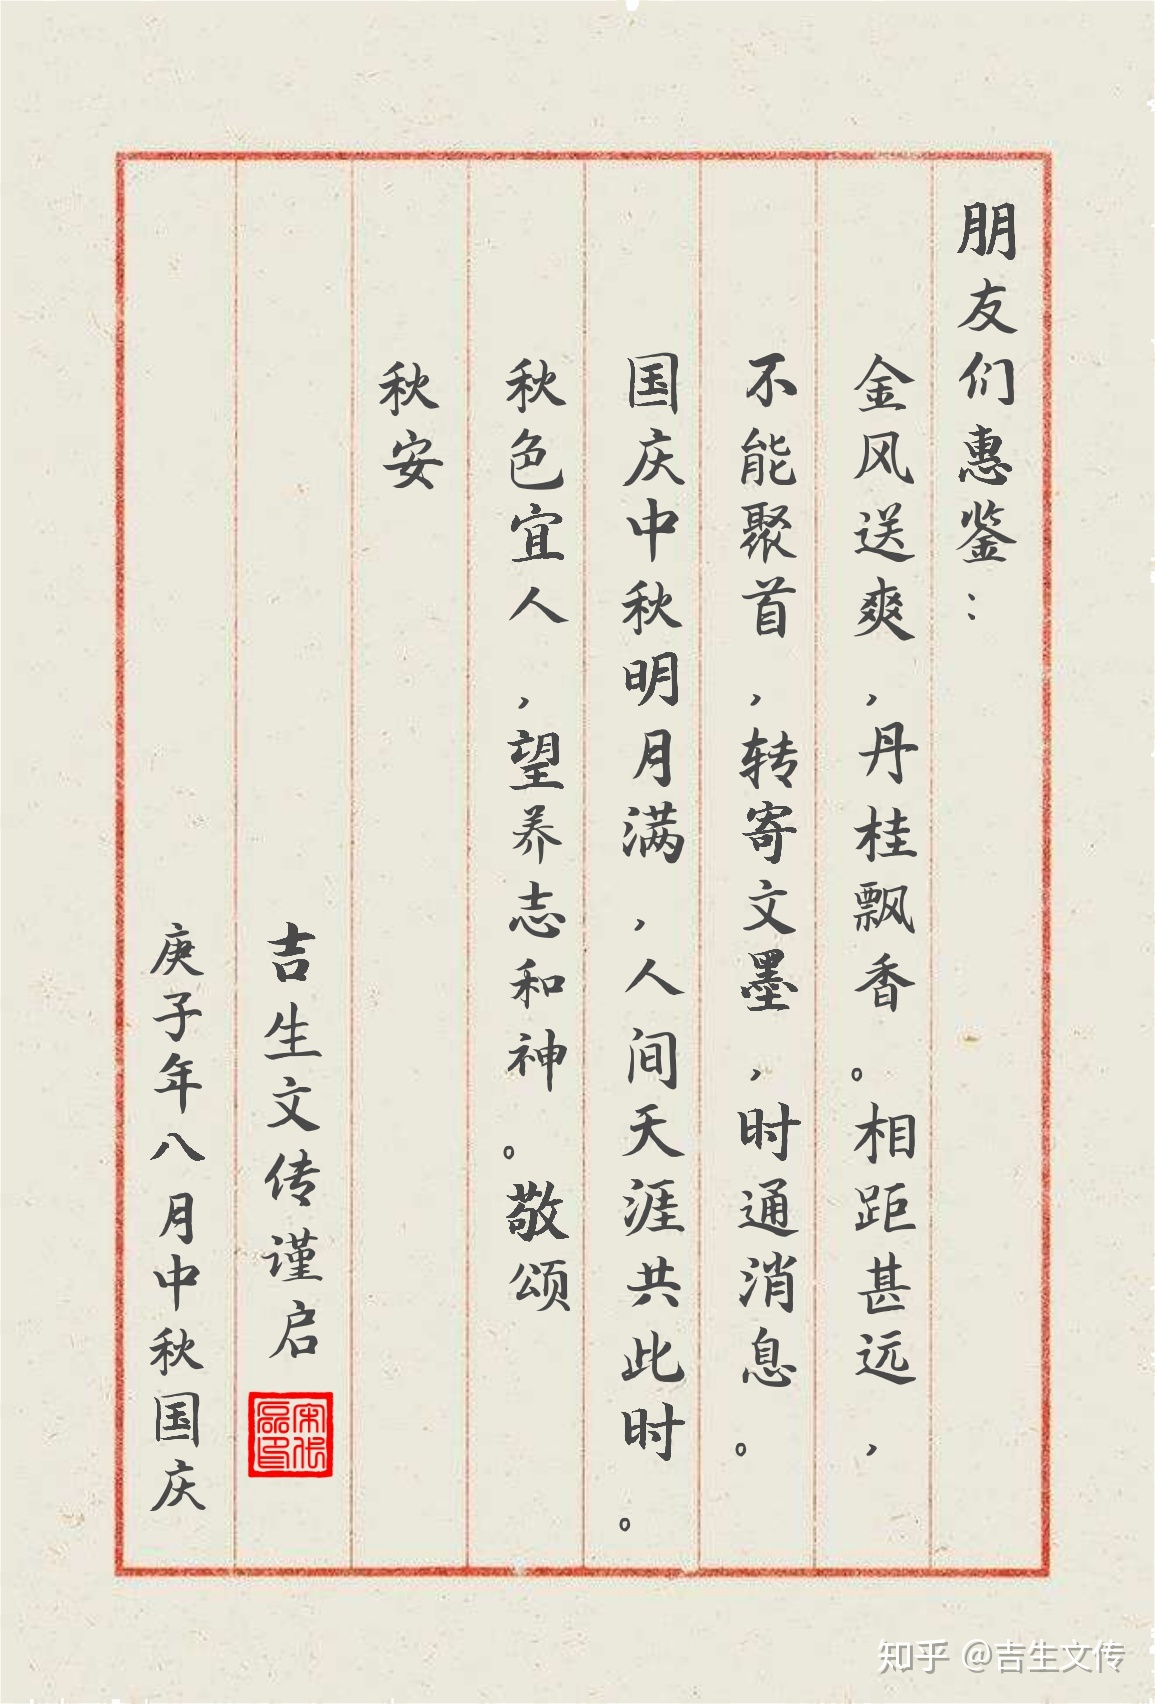 朋友们惠鉴：
金风送爽，丹桂飘香。相距甚远，
不能聚首，转寄文墨，时通消息。
国庆中秋明月满，人间天涯共此时。
秋色宜人，望养志和神。敬颂
秋安
吉生文传谨启
庚子年八月中秋国庆
知乎 @吉生文传